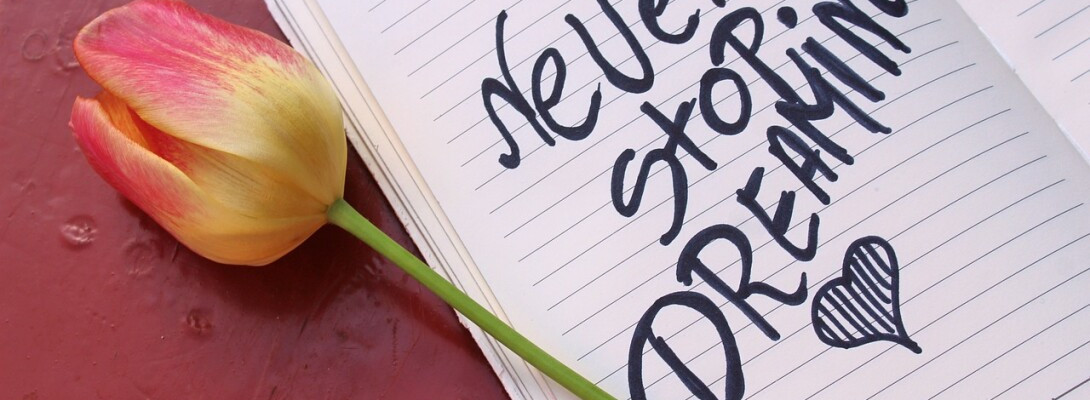 NeVer
StoP
DREAMiN